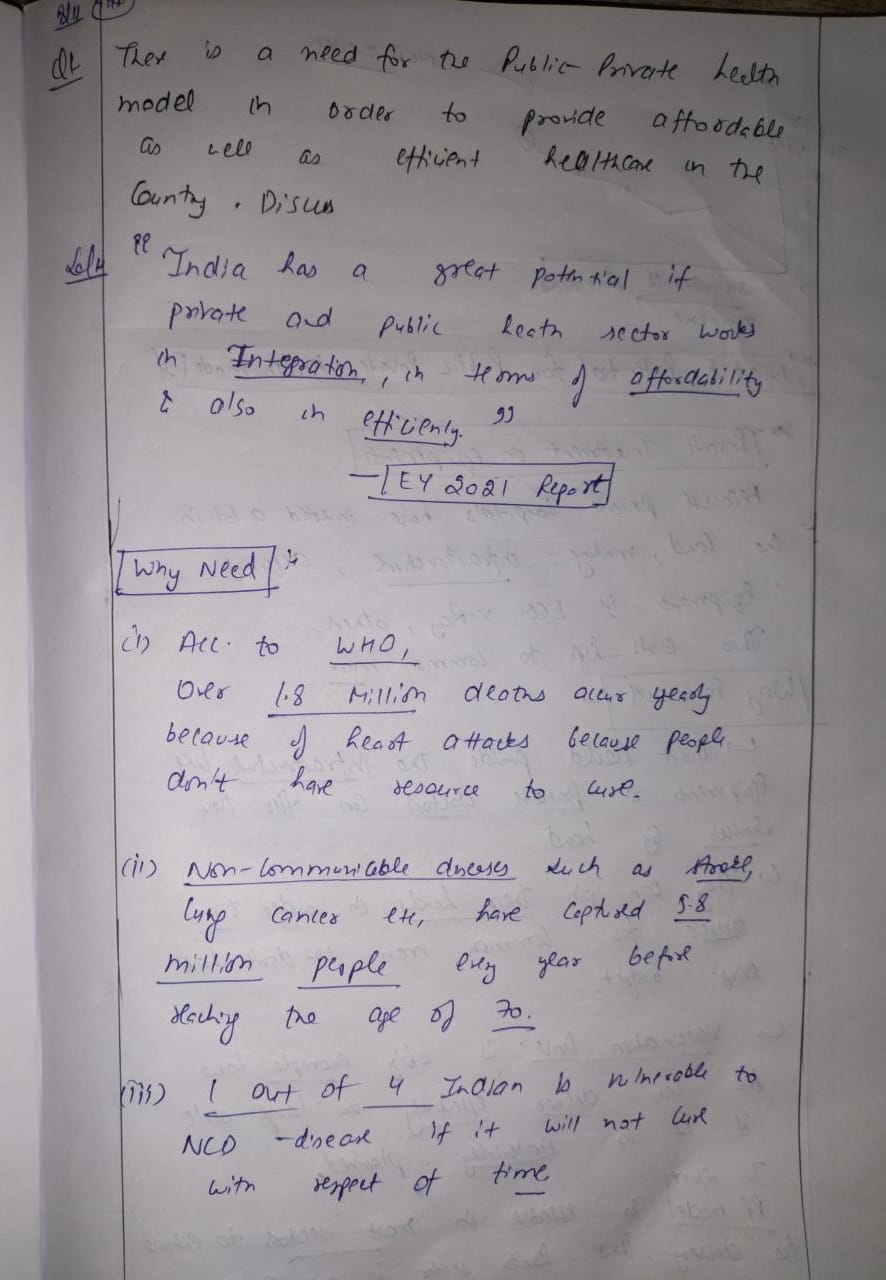 8/4
Q1 Ther is a need for the Public Private health
model in order to provide affordable
as well as efficient healthcare in the
Country. Discuss
Soln "India has a great potential if
private and public heath sector works
in Integration, in terms of affordability
& also in efficiently."
— EY 2021 Report
Why Need :-
(i) Acc. to WHO,
Over 1.8 Million deaths accur yearly
because of heart attacks because people
don't have resource to cure.
(ii) Non-Communicable diseases such as stroke,
lung cancer etc, have captured 5.8
million people every year before
reaching the age of 70.
(iii) 1 out of 4 Indian is vulnerable to
NCD -disease if it will not cure
with respect of time